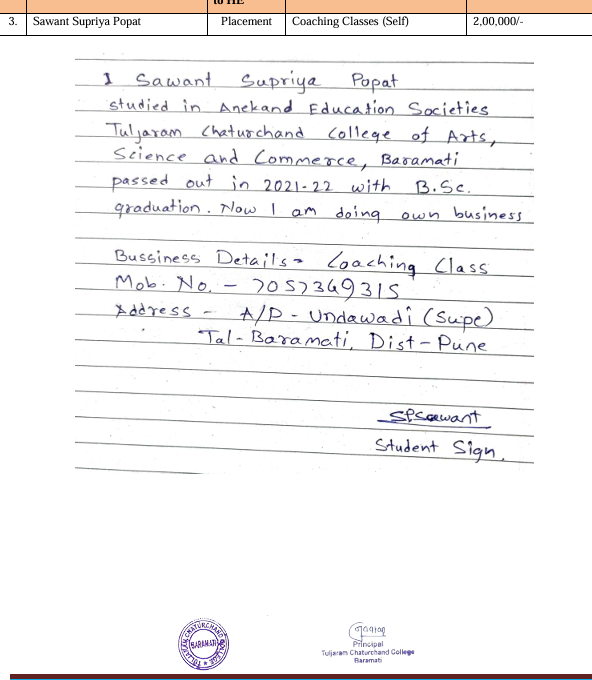 to HE
3. Sawant Supriya Popat Placement Coaching Classes (Self) 2,00,000/-
I Sawant Supriya Popat
studied in Anekand Education Societies
Tuljaram Chaturchand College of Arts,
Science and Commerce, Baramati
passed out in 2021-22 with B.Sc.
graduation. Now I am doing own business
Bussiness Details- Coaching Class
Mob. No. - 7057349315
Address - A/P - Undawadi (Supe)
Tal-Baramati, Dist-Pune
SPSawant
Student Sign.
TULJARAM CHATURCHAND COLLEGE
BARAMATI
Principal
Tuljaram Chaturchand College
Baramati